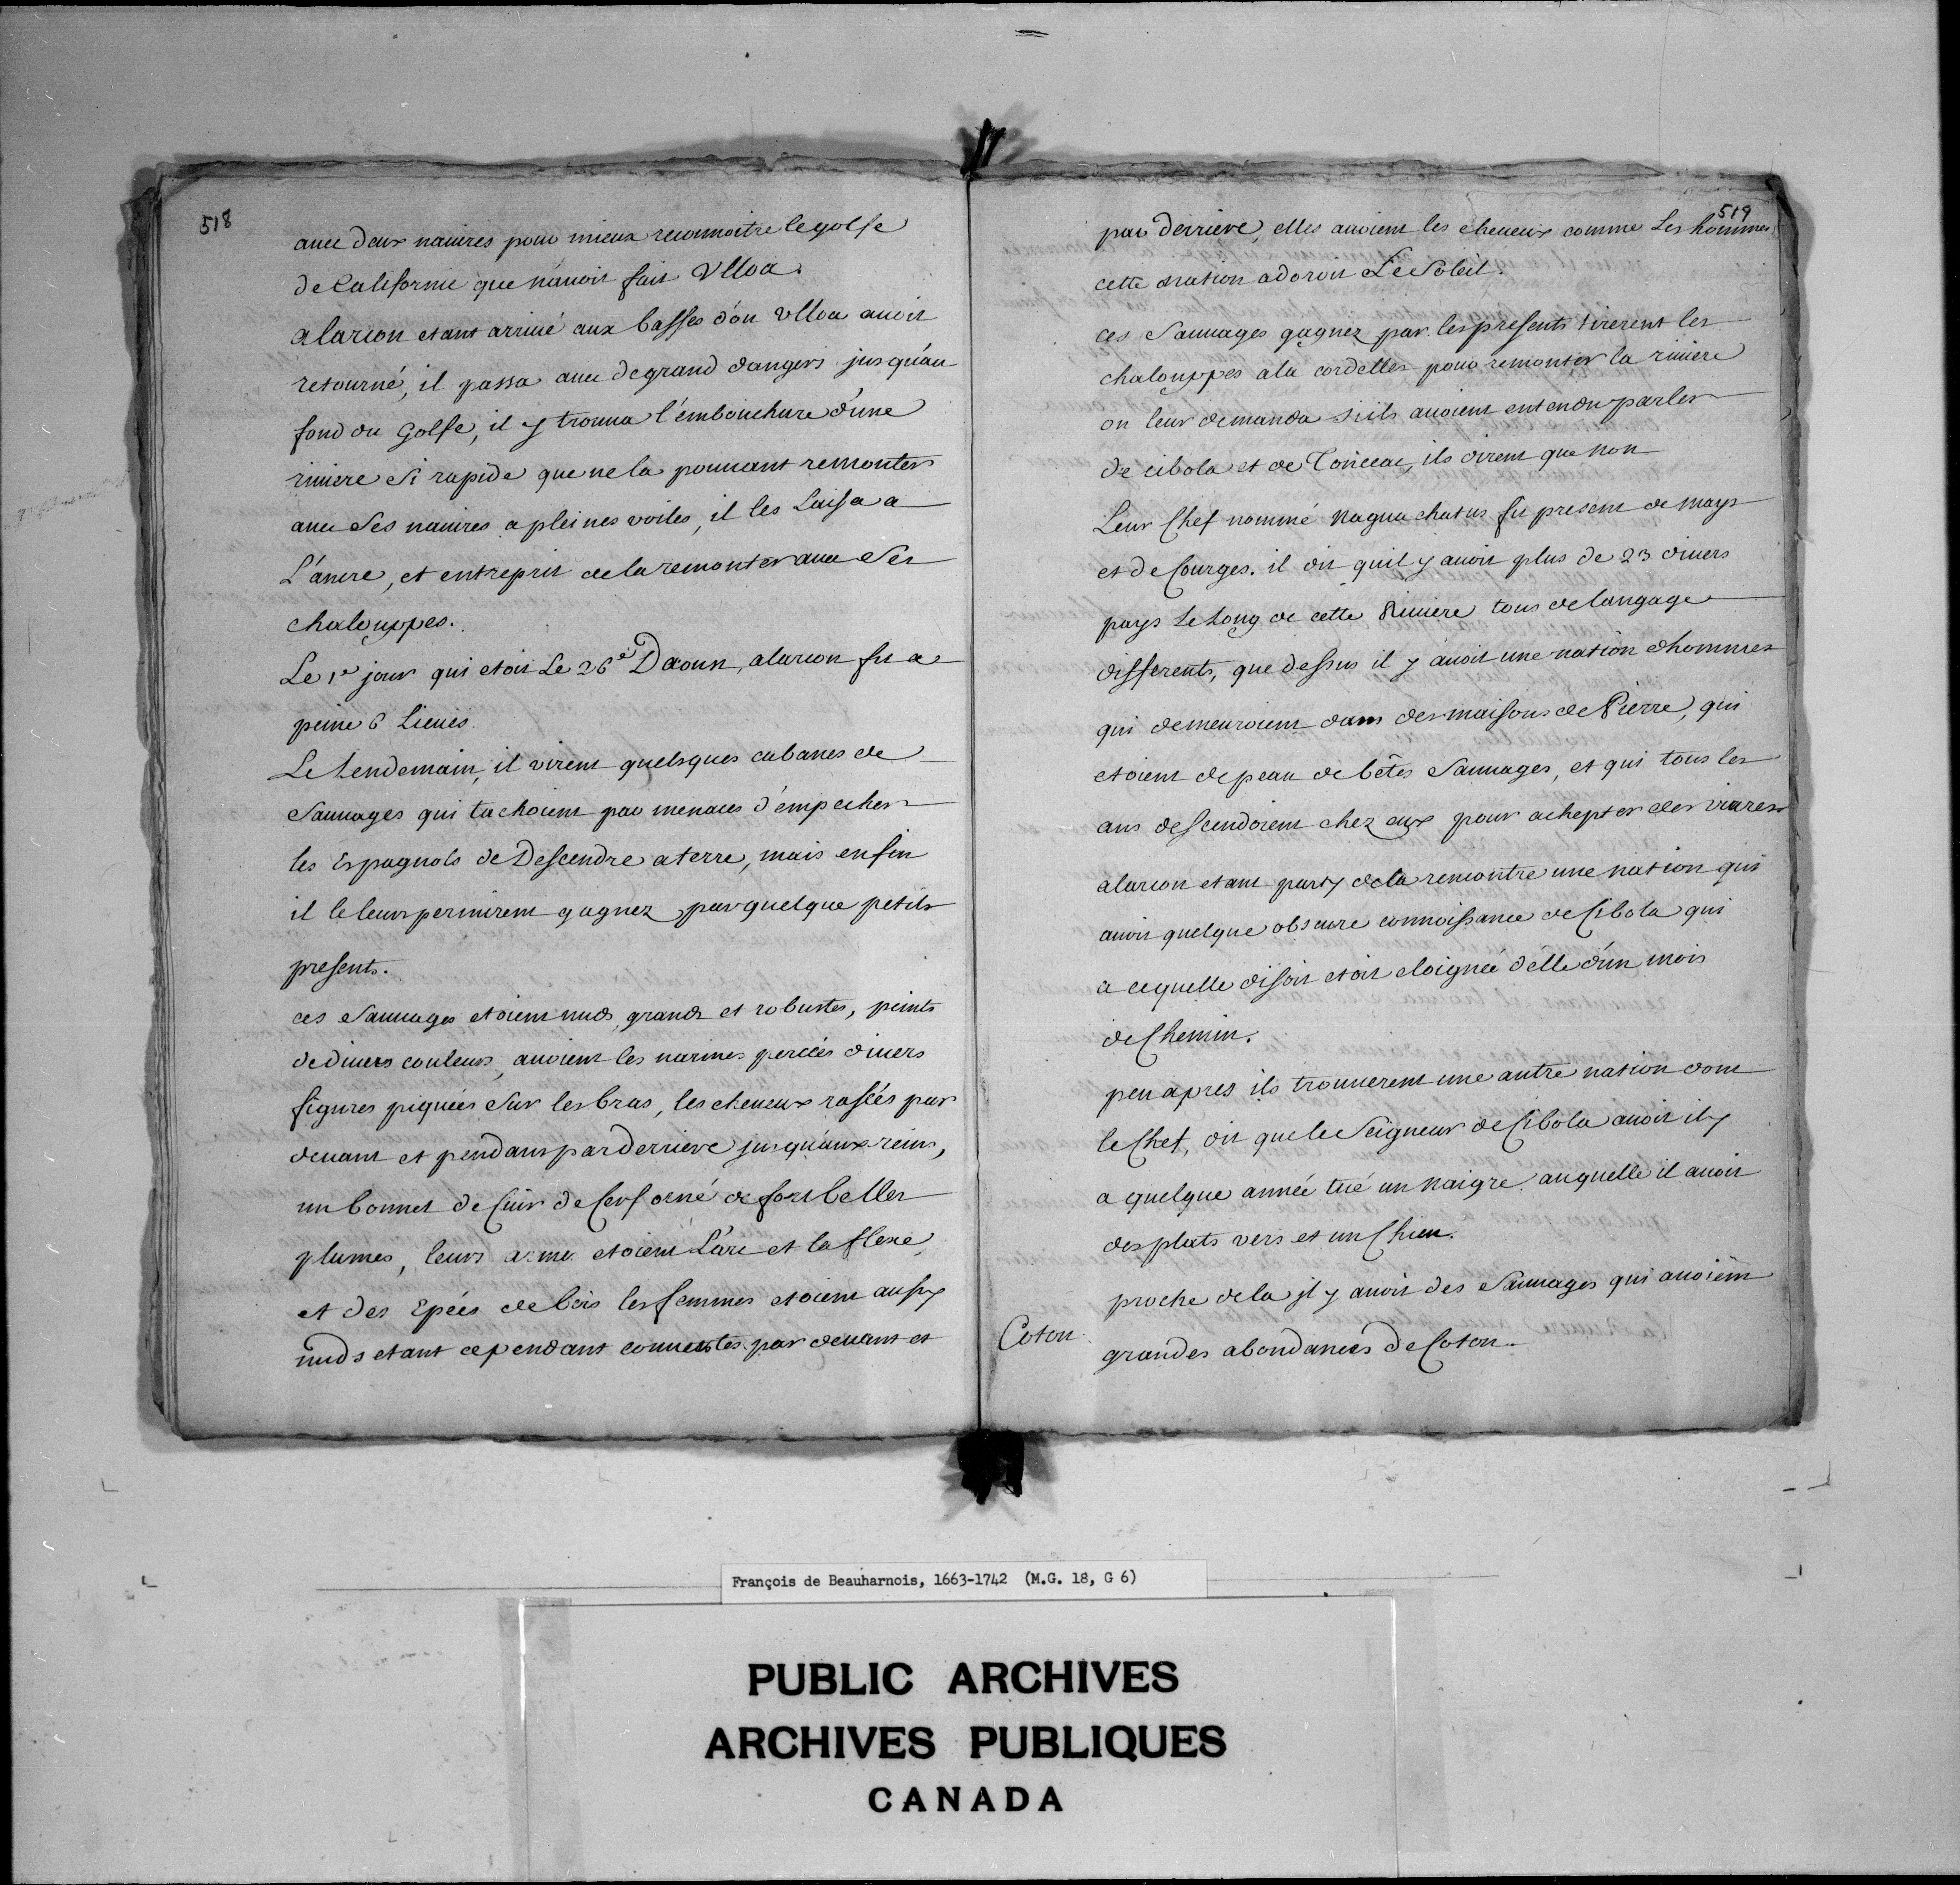 518
auec deux nauires pour mieux reconnoitre le golfe
de Californie que n'auoit fait Ulloa.
alarcon etant arriué aux basses d'ou ulloa auoit
retourné, il passa auec de grand dangers jusqu'au
fond du Golfe, il y trouua l'embouchure d'une
riuiere si rapide que ne la pouuant remonter
auec ses nauires a pleines voiles, il les Laissa a
L'ancre, et entreprit de la remonter auec ses
chalouppes.
Le 1er jour qui etoit Le 26e Daoust, alarcon fit a
peine 6 Lieües.
Le Lendemain, il virent quelsques cabanes de
Sauuages qui tachoient par menaces d'empecher
les Espagnols de Descendre a terre, mais enfin
il le leur permirent gagnez par quelque petits
presents.
ces Sauuages etoient nuds, grands et robustes, peints
de diuers couleurs, auoient les narines percées diuers
figures piquées sur les bras, les cheueux rasées par
deuant et pendans par derriere jusqu'aux reins,
un bonnet de Cuir de Cerf orné de fort belles
plumes, leurs arme etoient L'arc et la fleche,
et des Epées de bois les femmes etoient aussy
nuds etant cependant couuertes par deuant et
519
par derriere, elles auoient les cheueux comme Les hommes
cette nation adoroit Le Soleil.
ces Sauuages gagnez par les presents tirerent les
chalouppes a la cordelles pour remonter la riuiere
on leur demanda s'ils auoient entendu parler
de cibola et de , ils dirent que non
Leur Chef nommé Naguachatus fit present de mays
et de Courges. il dit quil y auoit plus de 23 diuers
pays Le Long de cette Riuiere tous de langage
differents, que dessus il y auoit une nation dhommes
qui demeuroient dans des maisons de Pierre, qui
etoient de peau de bêtes Sauuages, et qui tous les
ans descendoient chez eux pour achepter des viures
alarcon etant party de la rencontre une nation qui
auoit quelque obscure connoissance de Cibola qui
a cequelle disoit etoit eloignée d'elle d'un mois
de Chemin.
peu apres ils trouuerent une autre nation dont
le Chef, dit que le Seigneur de Cibola auoit il y
a quelque année tué un Naigre auquelle il auoit
des plats vers et un Chien.
proche de la jl y auoit des Sauuages qui auoient
Coton
grandes abondances de Coton.
François de Beauharnois, 1663-1742 (M.G. 18, G 6)
PUBLIC ARCHIVES
ARCHIVES PUBLIQUES
CANADA